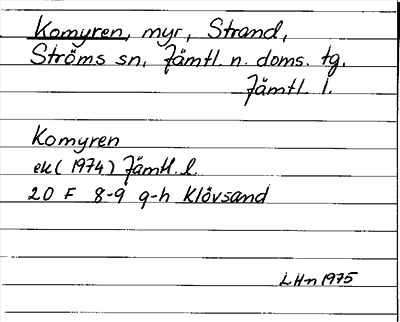 Komyren, myr, Strand,
Ströms sn, Jämtl. n. doms. tg.
Jämtl. l.
Komyren
ek (1974) Jämtl. l.
20 F 8-9 g-h Klövsand
LHn 1975